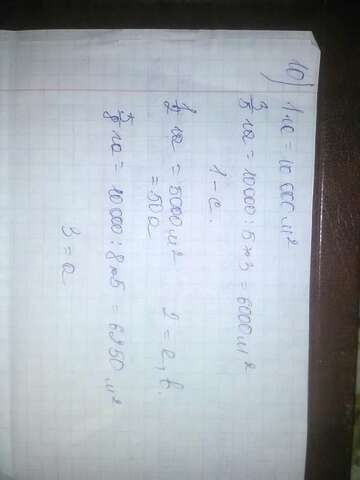 10) 1 га = 10 000 м²
3/5 га = 10000 : 5 × 3 = 6000 м²
1 – с.
1/2 га = 5000 м²
= 50 а 2 = е, в.
5/8 га = 10000 : 8 × 5 = 6250 м²
3 = а